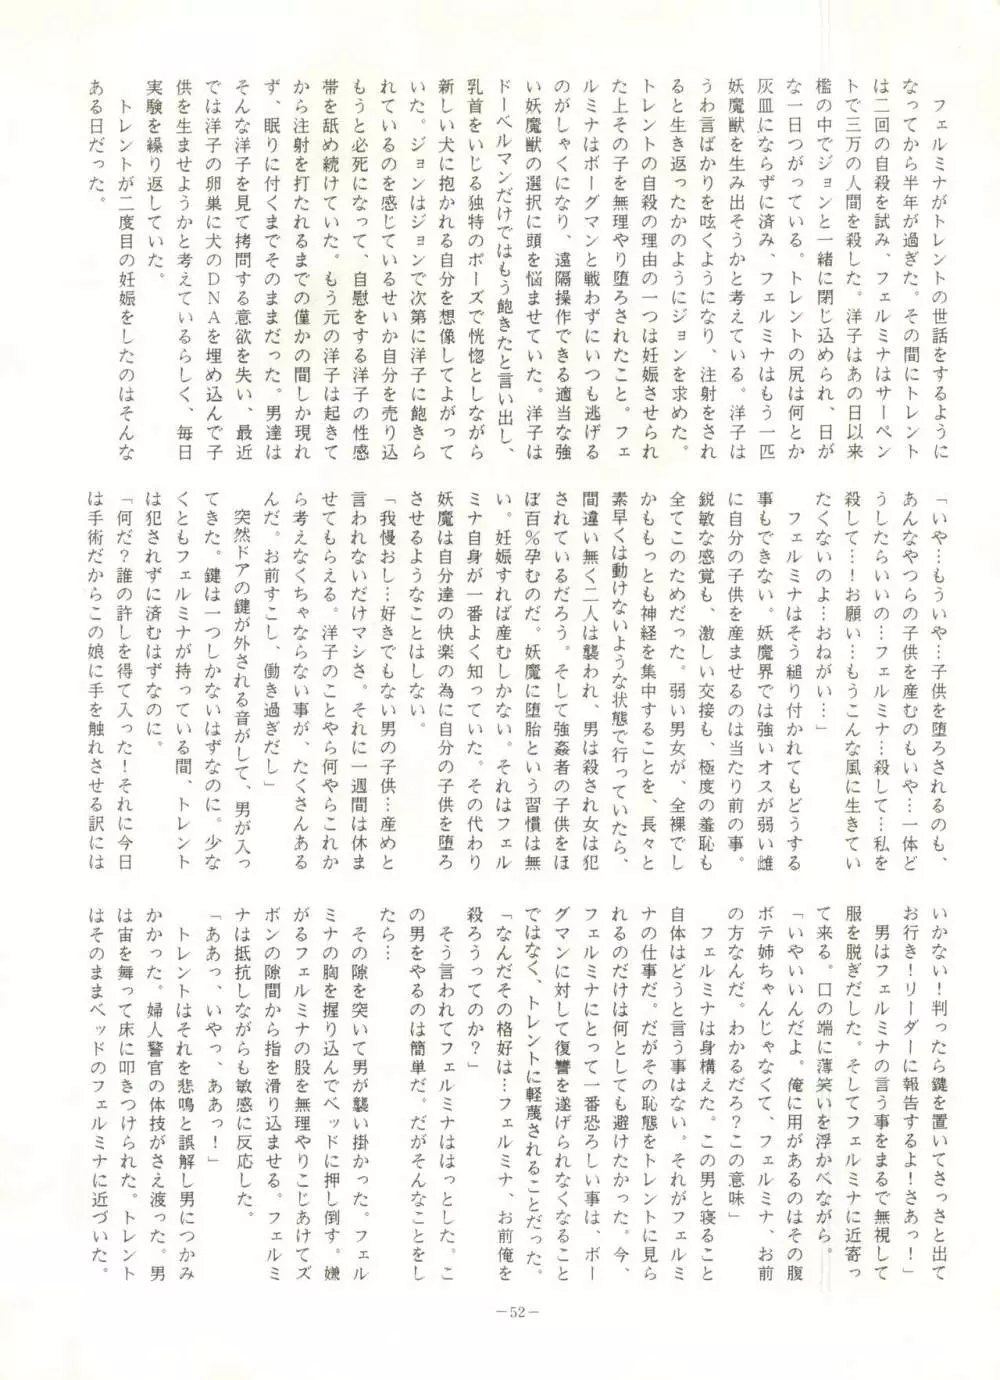 フェルミナがトレントの世話をするように
なってから半年が過ぎた。その間にトレント
は二回の自殺を試み、フェルミナはサーペン
トで三万の人間を殺した。洋子はあの日以来
檻の中でジョンと一緒に閉じ込められ、日が
な一日つがっている。トレントの尻は何とか
灰皿にならずに済み、フェルミナはもう一匹
妖魔獣を生み出そうかと考えている。洋子は
うわ言ばかりを呟くようになり、注射をされ
ると生き返ったかのようにジョンを求めた。
トレントの自殺の理由の一つは妊娠させられ
た上その子を無理やり堕ろされたこと。フェ
ルミナはボーグマンと戦わずにいつも逃げる
のがしゃくになり、遠隔操作できる適当な強
い妖魔獣の選択に頭を悩ませていた。洋子は
ドーベルマンだけではもう飽きたと言い出し、
乳首をいじる独特のポーズで恍惚としながら
新しい犬に抱かれる自分を想像してよがって
いた。ジョンはジョンで次第に洋子に飽きら
れているのを感じているせいか自分を売り込
もうと必死になって、自慰をする洋子の性感
帯を舐め続けていた。もう元の洋子は起きて
から注射を打たれるまでの僅かの間しか現れ
ず、眠りに付くまでそのままだった。男達は
そんな洋子を見て拷問する意欲を失い、最近
では洋子の卵巣に犬のDNAを埋め込んで子
供を生ませようかと考えているらしく、毎日
実験を繰り返していた。
トレントが二度目の妊娠をしたのはそんな
ある日だった。
「いや…もういや…子供を堕ろされるのも、
あんなやつらの子供を産むのもいや…一体ど
うしたらいいの…フェルミナ…殺して…私を
殺して…！お願い…もうこんな風に生きてい
たくないのよ…おねがい…」
フェルミナはそう縋り付かれてもどうする
事もできない。妖魔界では強いオスが弱い雌
に自分の子供を産ませるのは当たり前の事。
鋭敏な感覚も、激しい交接も、極度の羞恥も
全てこのためだった。弱い男女が、全裸でし
かももっとも神経を集中することを、長々と
素早くは動けないような状態で行っていたら、
間違い無く二人は襲われ、男は殺され女は犯
されているだろう。そして強姦者の子供をほ
ぼ百％孕むのだ。妖魔に堕胎という習慣は無
い。妊娠すれば産むしかない。それはフェル
ミナ自身が一番よく知っていた。その代わり
妖魔は自分達の快楽の為に自分の子供を堕ろ
させるようなことはしない。
「我慢おし…好きでもない男の子供…産めと
言われないだけマシさ。それに一週間は休ま
せてもらえる。洋子のことやら何やらこれか
ら考えなくちゃならない事が、たくさんある
んだ。お前すこし、働き過ぎだし」
突然ドアの鍵が外される音がして、男が入っ
てきた。鍵は一つしかないはずなのに。少な
くともフェルミナが持っている間、トレント
は犯されずに済むはずなのに。
「何だ？誰の許しを得て入った！それに今日
は手術だからこの娘に手を触れさせる訳には
いかない！判ったら鍵を置いてさっさと出て
お行き！リーダーに報告するよ！さあっ！」
男はフェルミナの言う事をまるで無視して
服を脱ぎだした。そしてフェルミナに近寄っ
て来る。口の端に薄笑いを浮かべながら。
「いやいいんだよ。俺に用があるのはその腹
ボテ姉ちゃんじゃなくて、フェルミナ、お前
の方なんだ。わかるだろ？この意味」
フェルミナは身構えた。この男と寝ること
自体はどうと言う事はない。それがフェルミ
ナの仕事だ。だがその恥態をトレントに見ら
れるのだけは何としても避けたかった。今、
フェルミナにとって一番恐ろしい事は、ボー
グマンに対して復讐を遂げられなくなること
ではなく、トレントに軽蔑されることだった。
「なんだその格好は…フェルミナ、お前俺を
殺ろうってのか？」
そう言われてフェルミナははっとした。こ
の男をやるのは簡単だ。だがそんなことをし
たら…
その隙を突いて男が襲い掛かった。フェル
ミナの胸を握り込んでベッドに押し倒す。嫌
がるフェルミナの股を無理やりこじあけてズ
ボンの隙間から指を滑り込ませる。フェルミ
ナは抵抗しながらも敏感に反応した。
「ああっ、いやっ、ああっ！」
トレントはそれを悲鳴と誤解し男につかみ
かかった。婦人警官の体技がさえ渡った。男
は宙を舞って床に叩きつけられた。トレント
はそのままベッドのフェルミナに近づいた。
－52－